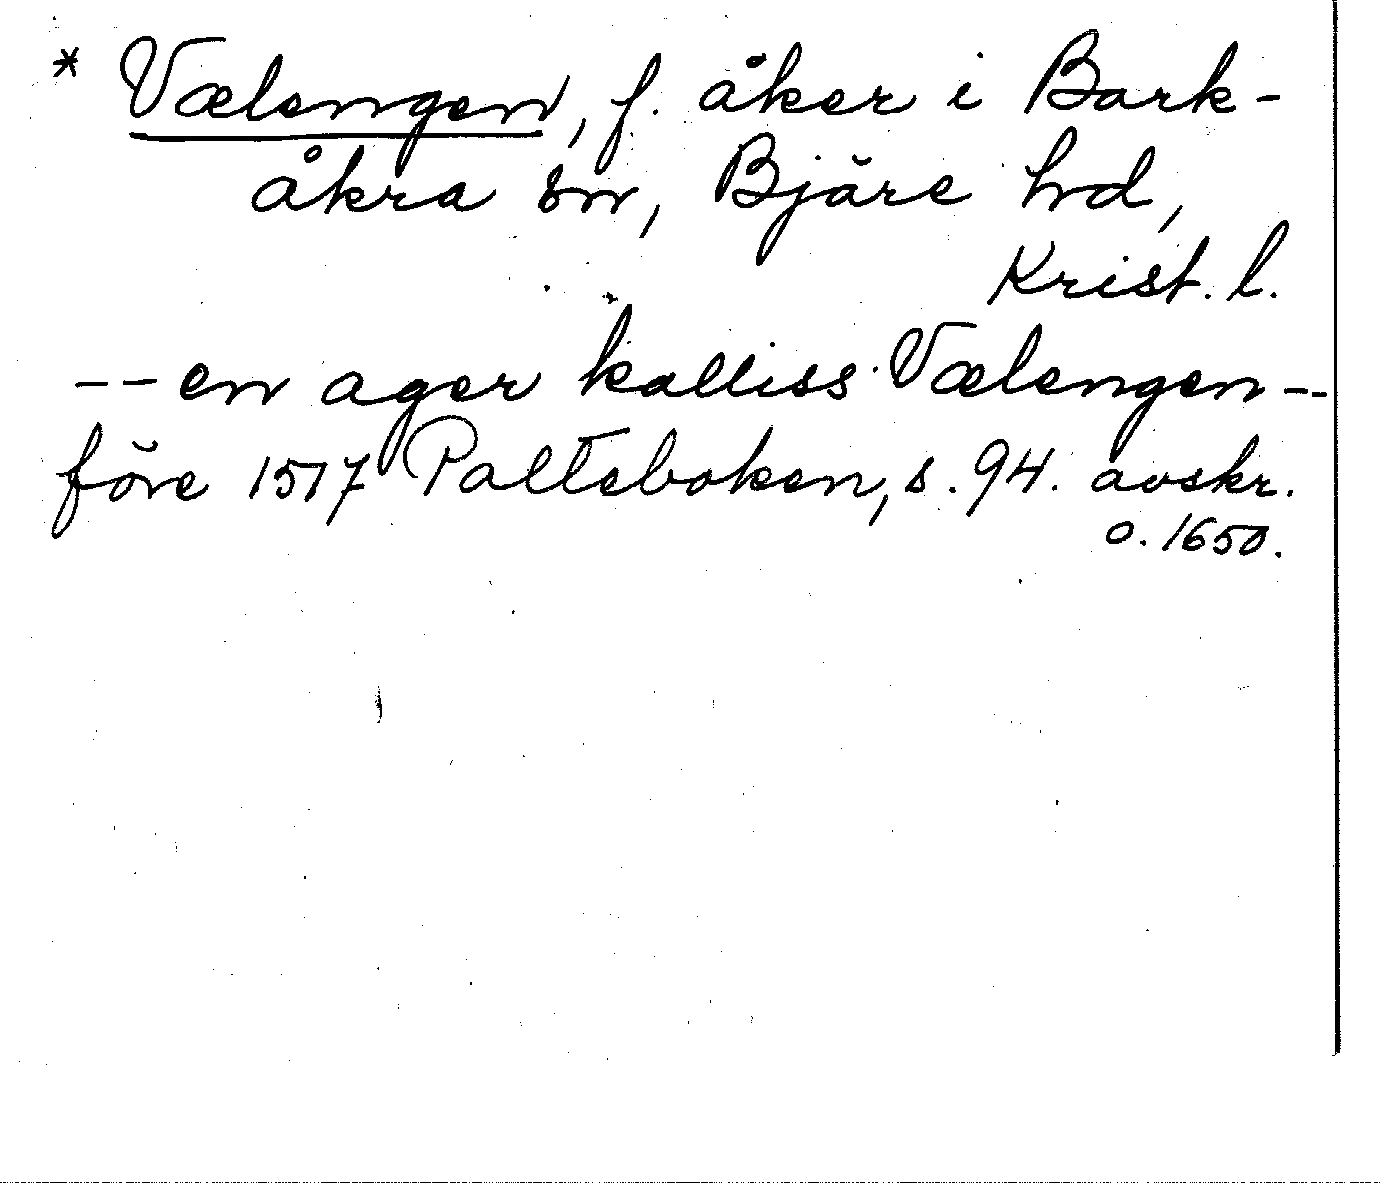 * Vælengen, f. åker i Bark-
åkra sn, Bjäre hd,
Krist. l.
-- en ager kalliss Vælengen --
före 1517 Palteboken, s. 94. avskr.
o. 1650.